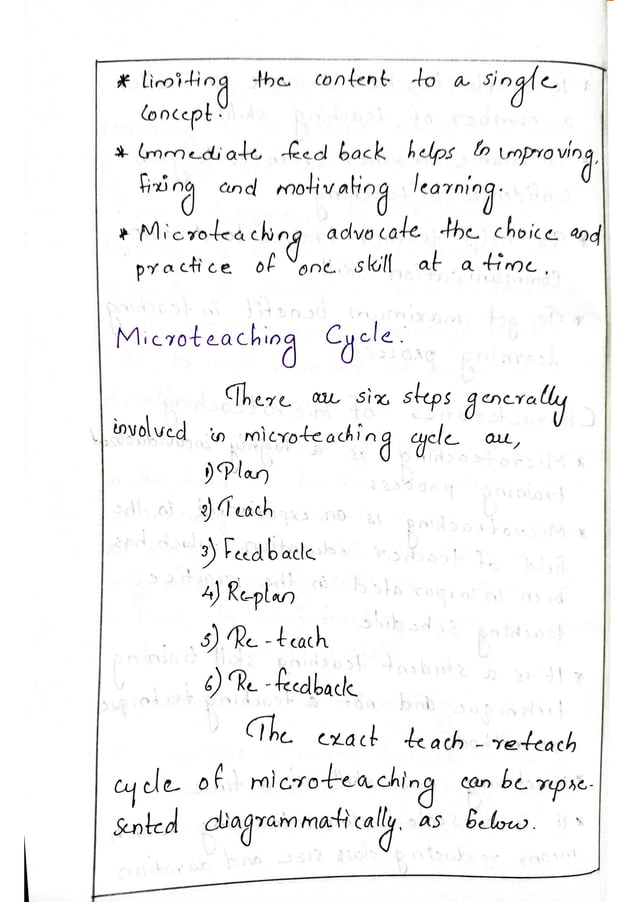 * Limiting the content to a single
concept.
* Immediate feed back helps in improving,
fixing and motivating learning.
* Microteaching advocate the choice and
practice of one skill at a time.
Microteaching Cycle.
There are six steps generally
involved in microteaching cycle are,
1) Plan
2) Teach
3) Feedback
4) Re-plan
5) Re-teach
6) Re-feedback
The exact teach-reteach
cycle of microteaching can be repre-
sented diagrammatically. as below.